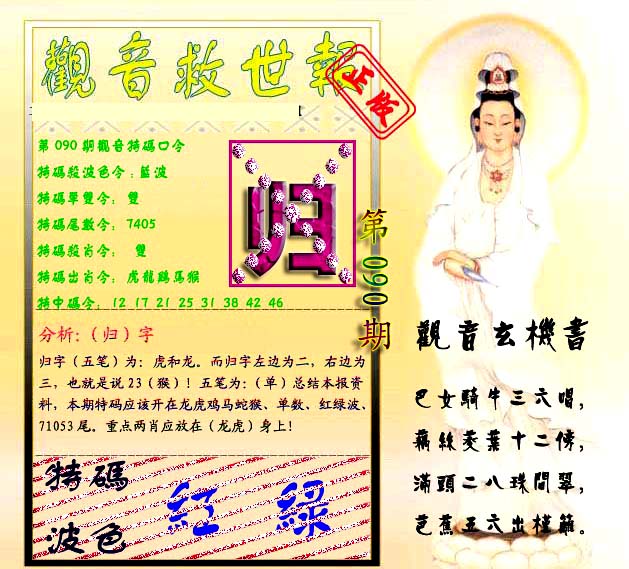 觀音救世報
正版
第 090 期觀音特碼口令
特碼殺波色令：藍波
特碼單雙令： 雙
特碼尾數令： 7405
特碼殺肖令： 雙
特碼出肖令： 虎龍鷄馬猴
特中碼令： 12 17 21 25 31 38 42 46
归
第 090 期
分析:（归）字
归字（五笔）为：虎和龙。而归字左边为二，右边为
三，也就是说 23（猴）！五笔为:（单）总结本报资
料，本期特码应该开在龙虎鸡马蛇猴、单数、红绿波、
71053 尾。重点两肖应放在（龙虎）身上！
特碼
波色
紅 綠
觀音玄機書
巴女騎牛三六唱,
藕絲菱葉十二傍,
滿頭二八珠間翠,
芭蕉五六出槿籬。